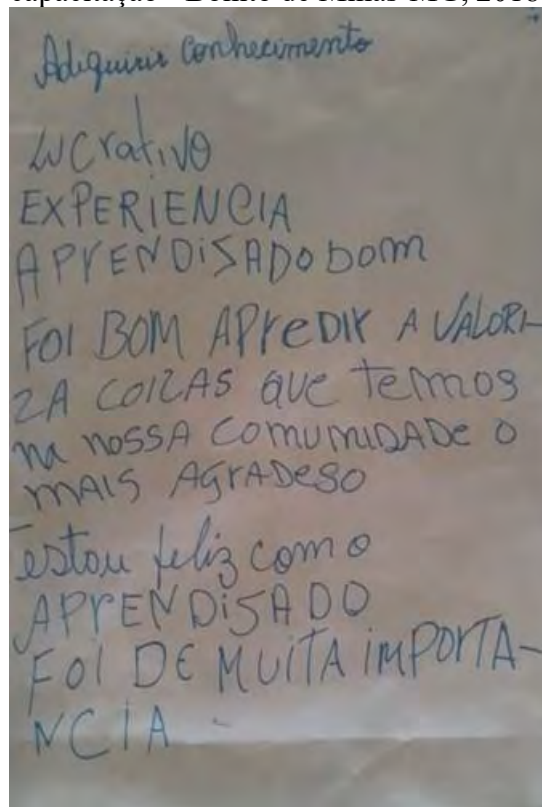 Adiquirir conhecimento
LUCrativo
EXPERIENCIA
APrENDiSADO bom
FOI BOM APreDIR A VALORI-
ZA COIZAS QUE Temos
na nossA comumiDADe o
mAIS AGrADeSO
estou feliz com o
APrENDiSADO
FOI DE MUITA imPORTA-
NCiA